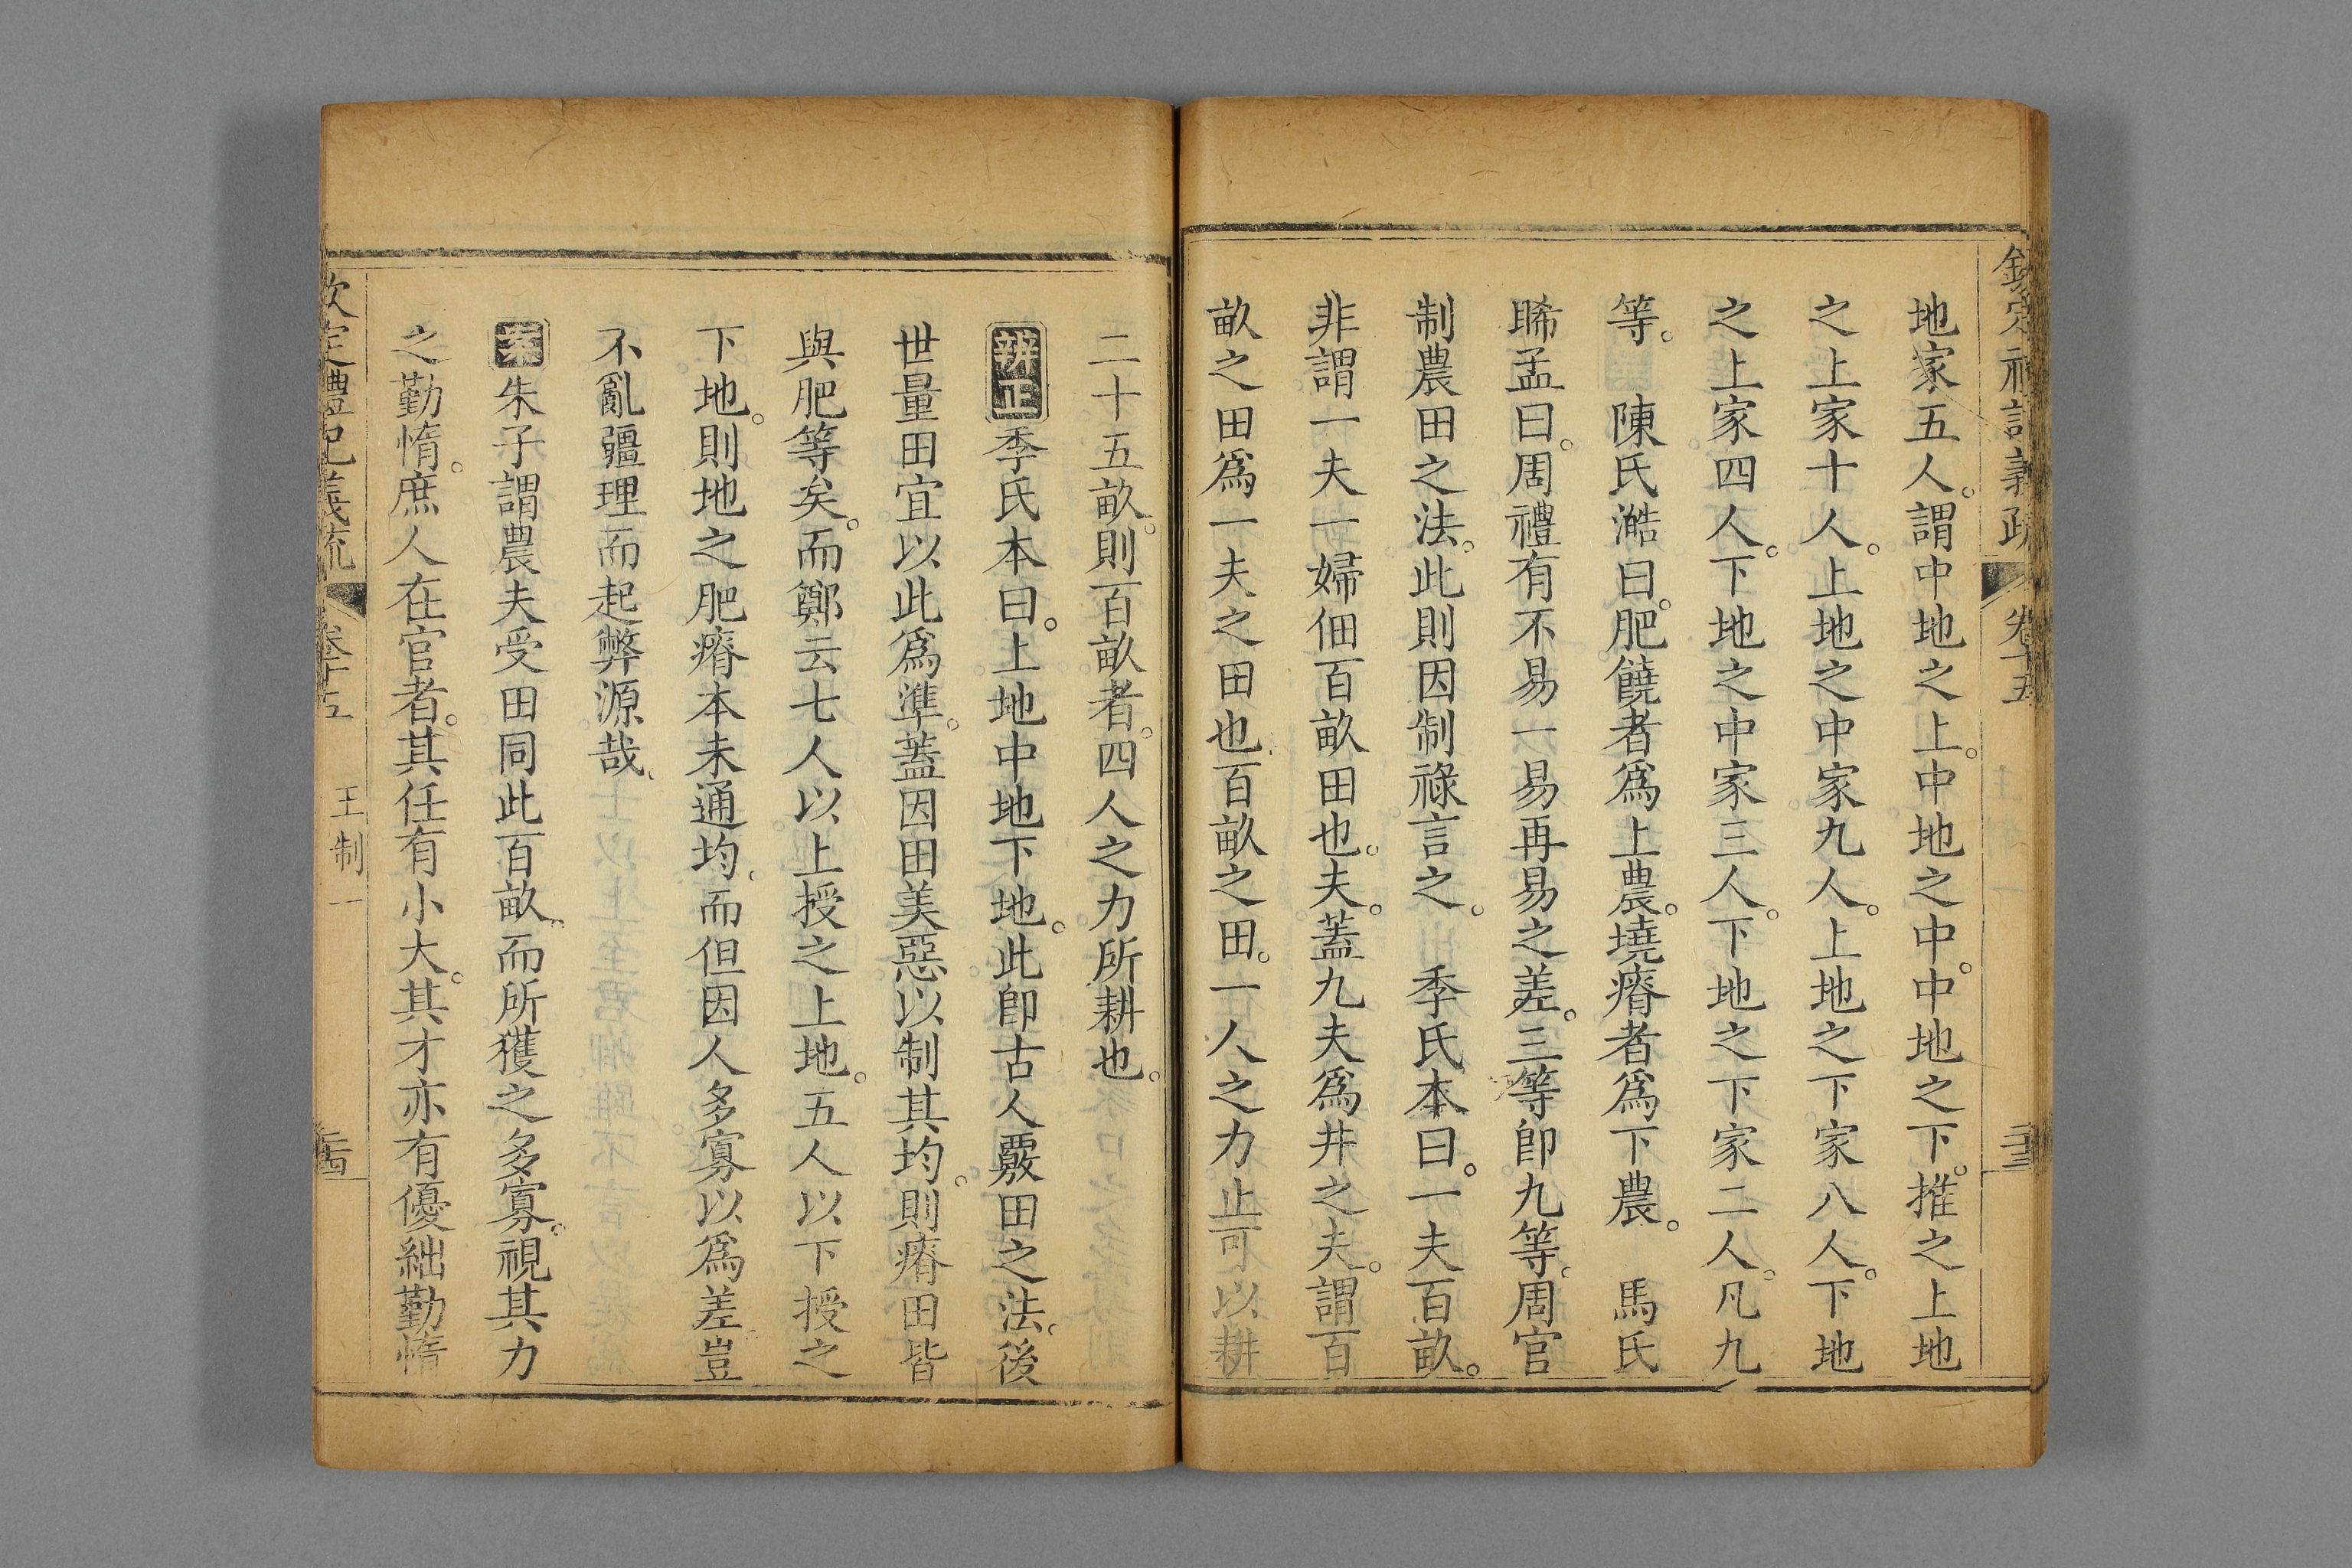 欽定禮記義疏 卷十五 王制一 二十三
地家五人。謂中地之上。中地之中。中地之下。推之上地
之上家十人。上地之中家九人。上地之下家八人。下地
之上家四人。下地之中家三人。下地之下家二人。凡九
等。 陳氏澔曰。肥饒者爲上農。墝瘠者爲下農。 馬氏
晞孟曰。周禮有不易一易再易之差。三等卽九等。周官
制農田之法。此則因制祿言之。 季氏本曰。一夫百畝。
非謂一夫一婦佃百畝田也。夫。蓋九夫爲井之夫。謂百
畝之田爲一夫之田也。百畝之田。一人之力止可以耕
二十五畝。則百畝者。四人之力所耕也。
辨正季氏本曰。上地中地下地。此卽古人覈田之法。後
世量田宜以此爲準。蓋因田美惡以制其均。則瘠田皆
與肥等矣。而鄭云七人以上授之上地。五人以下授之
下地。則地之肥瘠本未通均。而但因人多寡以爲差。豈
不亂疆理而起弊源哉。
案朱子謂農夫受田同此百畝。而所獲之多寡。視其力
之勤惰。庶人在官者。其任有小大。其才亦有優絀勤惰
欽定禮記義疏 卷十五 王制一 二十四